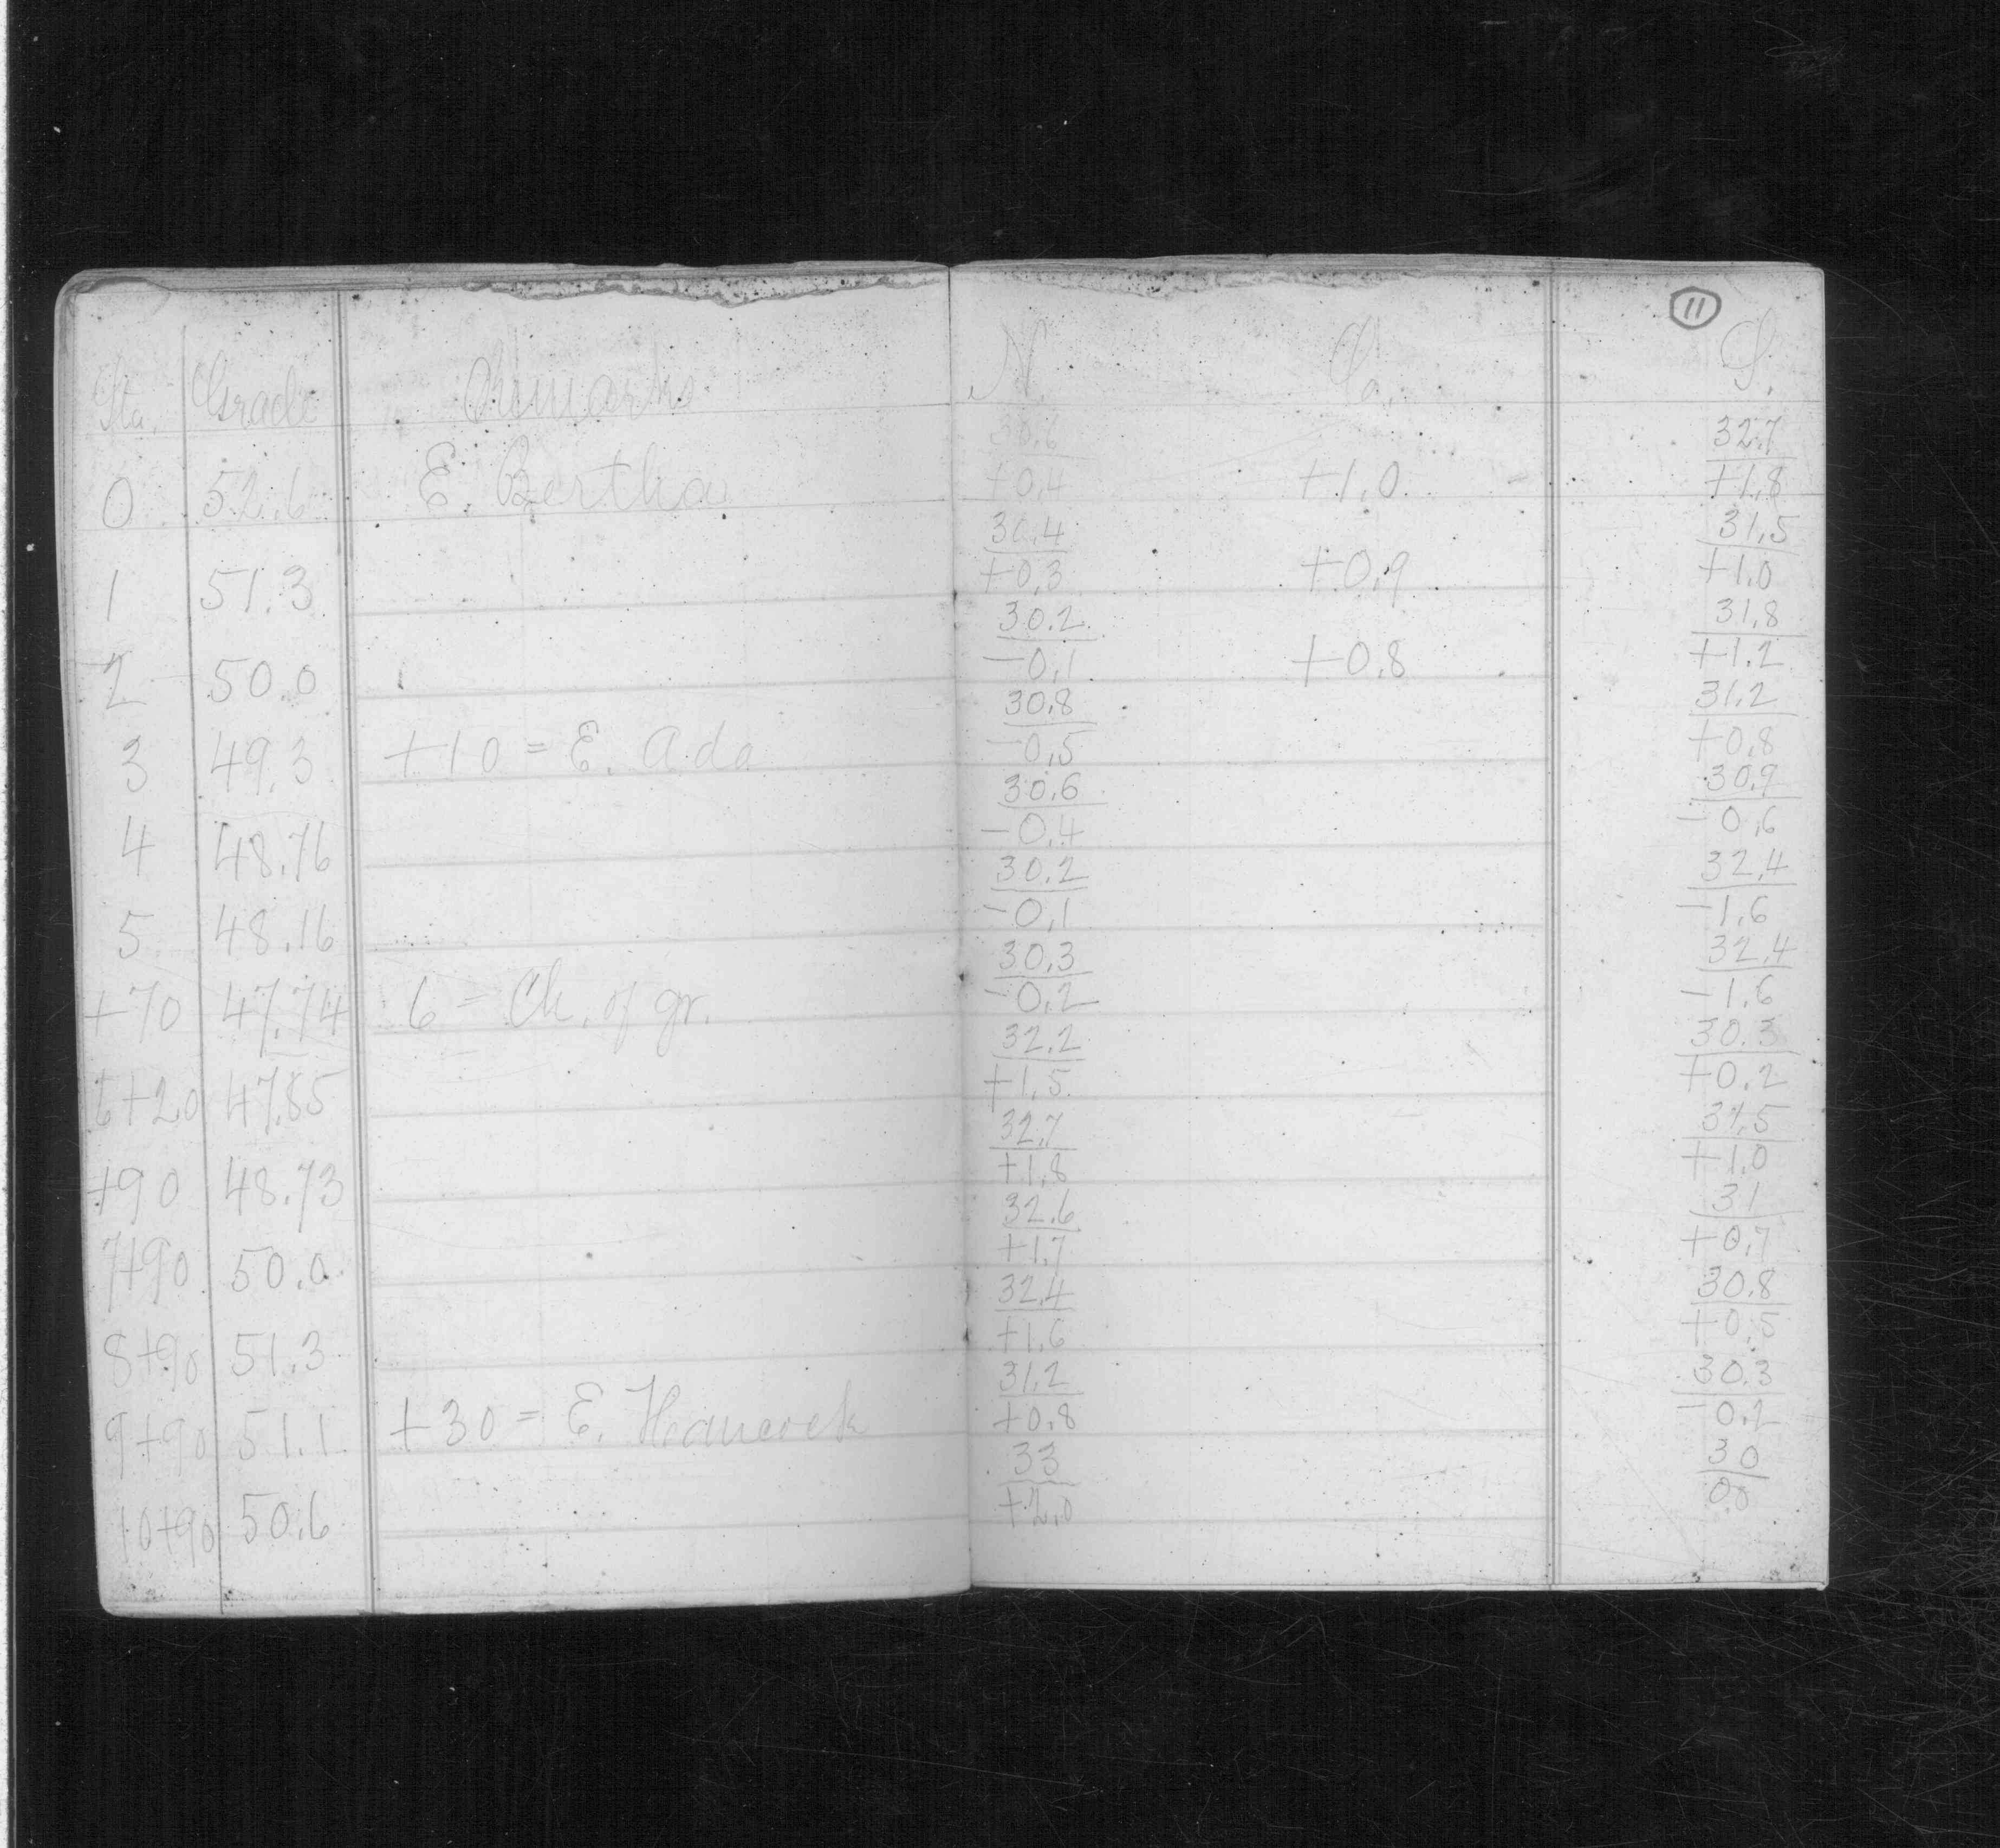 11
Sta. Grade Remarks N. S.
30.6 32.7
0 52.6 E. Bertha +0.4 +1.0 +1.8
30.4 31.5
1 51.3 +0.3 +0.9 +1.0
30.2 31.8
2 50.0 -0.1 +0.8 +1.2
30.8 31.2
3 49.3 +10 = E. Ada -0.5 +0.8
30.6 30.9
4 48.76 -0.4 -0.6
30.2 32.4
5 48.16 -0.1 -1.6
30.3 32.4
+70 47.74 6 = Ch. of gr. -0.2 -1.6
32.2 30.3
6+20 47.85 +1.5 +0.2
32.7 31.5
+90 48.73 +1.8 +1.0
32.6 31
7+90 50.0 +1.7 +0.7
32.4 30.8
8+90 51.3 +1.6 +0.5
31.2 30.3
9+90 51.1 +30 = E. Hancock +0.8 -0.2
33 30
10+90 50.6 +2.0 0.0